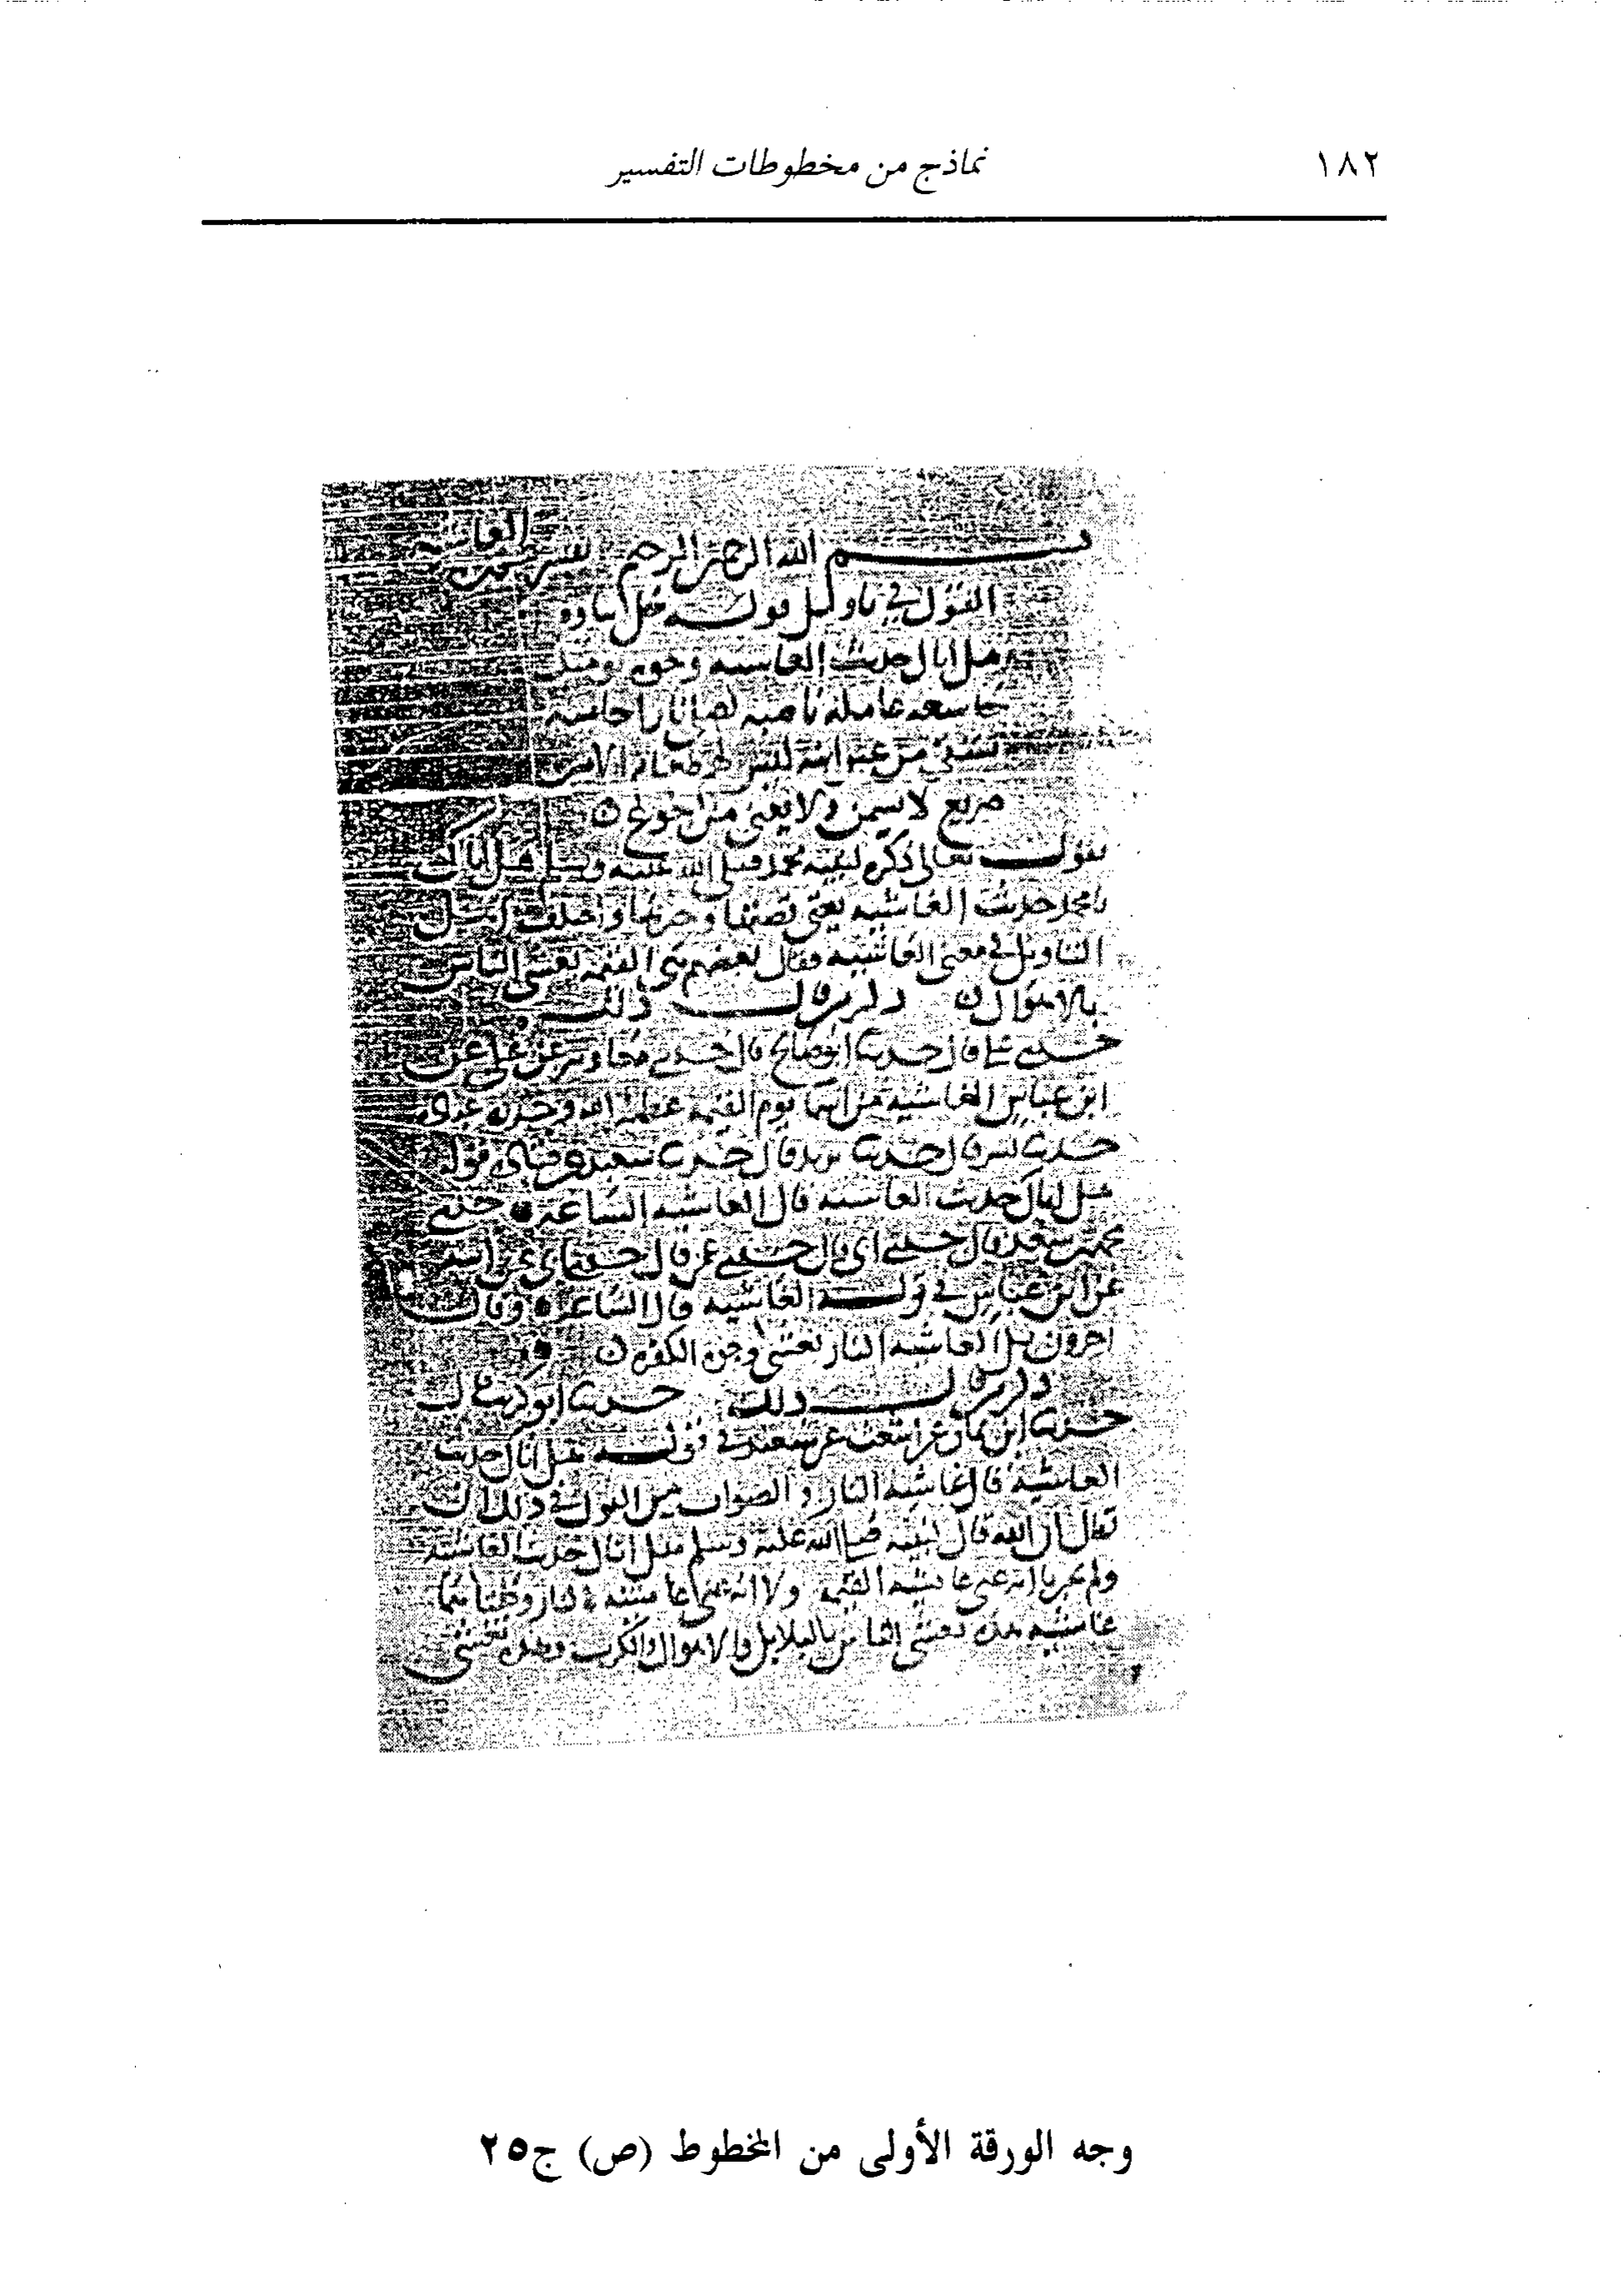 ١٨٢
نماذج من مخطوطات التفسير
بسم الله الرحمن الرحيم تفسير الغاشية
القول في تاويل قوله جل ثناؤه
هل اتاك حديث الغاشيه وجوه يومئذ
خاشعه عامله ناصبه تصلى نارا حاميه
تسقى من عين انيه ليس لهم طعام الا من
ضريع لا يسمن ولا يغني من جوع
يقول تعالى ذكره لنبيه محمد صلى الله عليه وسلم هل اتاك
يا محمد حديث الغاشيه يعني قصتها وخبرها واختلف اهل
التاويل في معنى الغاشيه فقال بعضهم هي القيمه تغشى الناس
بالاهوال ذكر من قال ذلك
حدثني علي قال حدثنا ابو صالح قال حدثني معاويه عن علي عن
ابن عباس الغاشيه من اسما يوم القيمه عظمه الله وحذره عباده
حدثنا بشر قال حدثنا يزيد قال حدثنا سعيد عن قتاده قوله
هل اتاك حديث الغاشيه قال الغاشيه الساعه حدثني
محمد بن سعد قال حدثني ابي قال حدثني عمي قال حدثني ابي عن ابيه
عن ابن عباس في قوله الغاشيه قال الساعه وقال
اخرون بل الغاشيه النار تغشى وجوه الكفره
ذكر من قال ذلك حدثنا ابو كريب قال
حدثنا ابن يمان عن اشعث عن سعيد في قوله هل اتاك حديث
الغاشيه قال غاشيه النار والصواب من القول في ذلك ان
يقال ان الله قال لنبيه صلى الله عليه وسلم هل اتاك حديث الغاشيه
ولم يخبرنا انه عنى غاشيه القيمه ولا انه عنى غاشيه النار وكلتاهما
غاشيه هذه تغشى الناس بالبلابل والاهوال والكرب وهذه تغشى
وجه الورقة الأولى من المخطوط (ص) ج٢٥